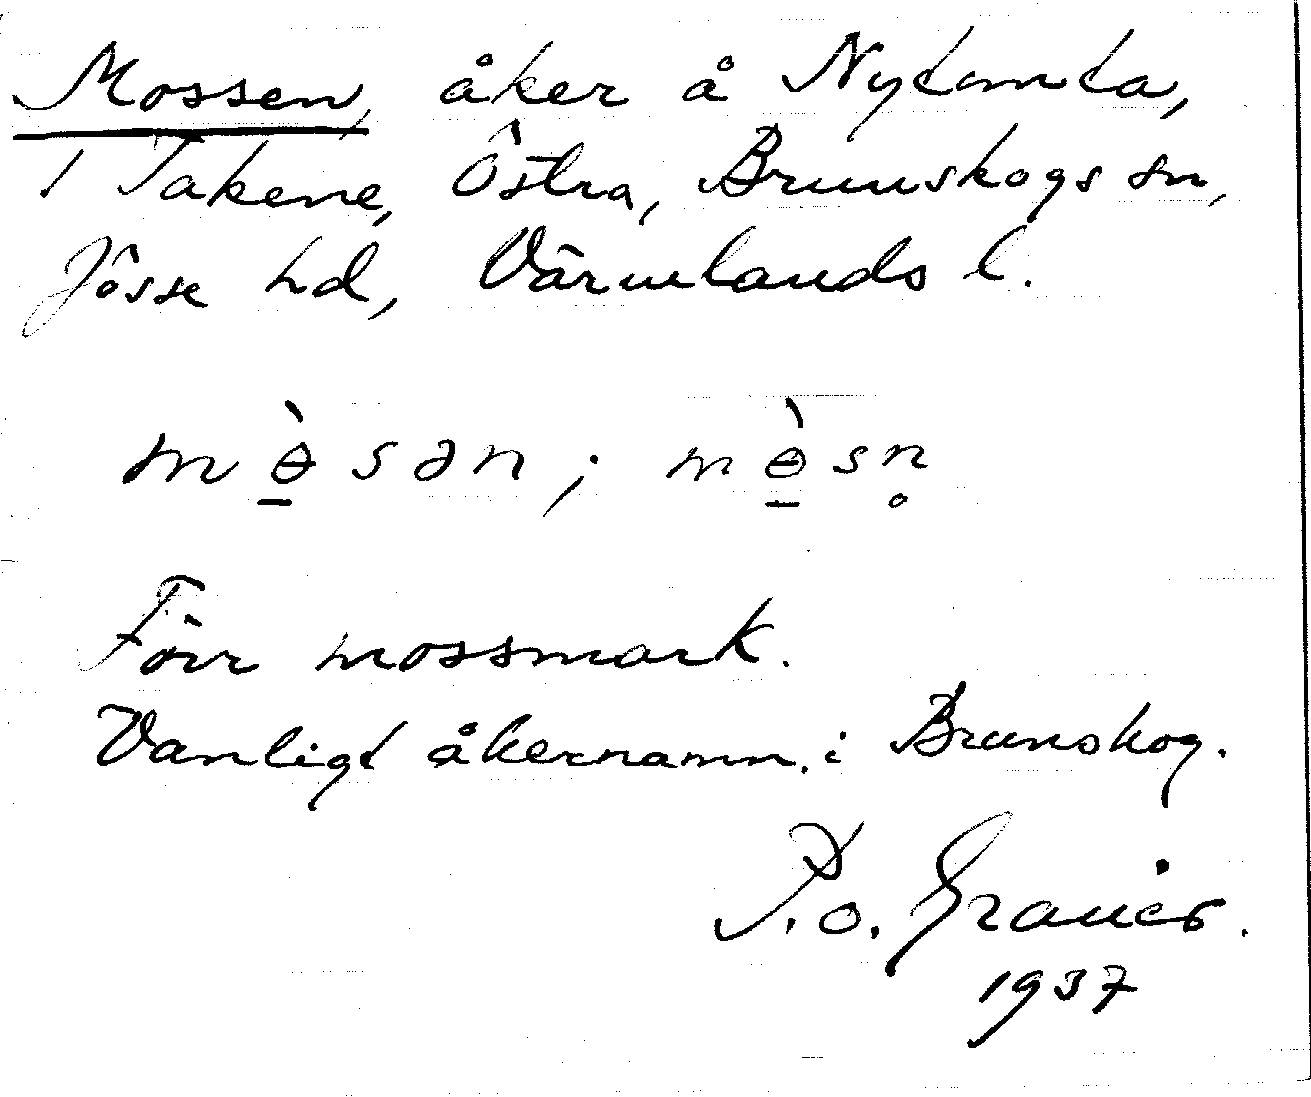 Mossen, åker å Nytomta,
1 Takene, Östra, Brunskogs sn,
Jösse hd, Värmlands l.
mɵ̠̀sən; mɵ̠̀sn̥
Förr mossmark.
Vanligt åkernamn i Brunskog.
P.o. Granér.
1937